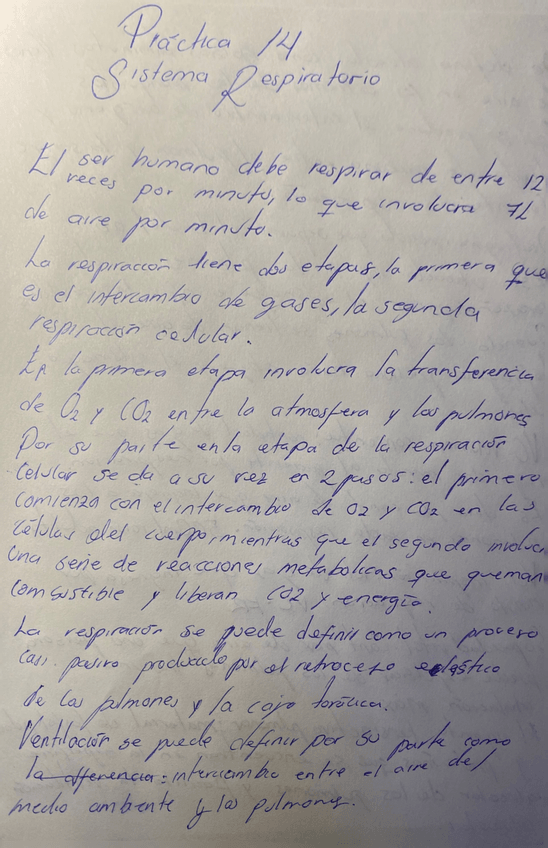 Práctica 14
Sistema Respiratorio
El ser humano debe respirar de entre 12
veces por minuto, lo que involucra 7L
de aire por minuto.
La respiración tiene dos etapas, la primera que
es el intercambio de gases, la segunda
respiración celular.
En la primera etapa involucra la transferencia
de O2 y CO2 entre la atmosfera y los pulmones
Por su parte en la etapa de la respiración
celular se da a su vez en 2 pasos: el primero
comienza con el intercambio de O2 y CO2 en las
células del cuerpo, mientras que el segundo involucra
una serie de reacciones metabolicas que queman
combustible y liberan CO2 y energía.
La respiración se puede definir como un proceso
casi pasivo producido por el retroceso elástico
de los pulmones y la caja torácica.
Ventilación se puede definir por su parte como
la diferencia: intercambio entre el aire del
medio ambiente y los pulmones.